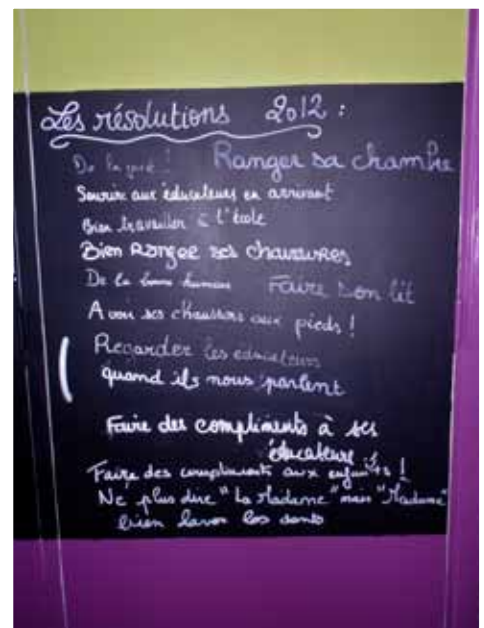 Les résolutions 2012 :
De la gaité ! Ranger sa chambre
Sourire aux éducateurs en arrivant
Bien travailler à l'école
Bien Ranger ses chaussures
De la bonne humeur Faire son lit
Avoir ses chaussons aux pieds !
Regarder les éducateurs
quand ils nous parlent
Faire des compliments à ses
éducateurs
Faire des compliments aux enfants !
Ne plus dire "La Madame" mais "Madame"
bien laver les dents